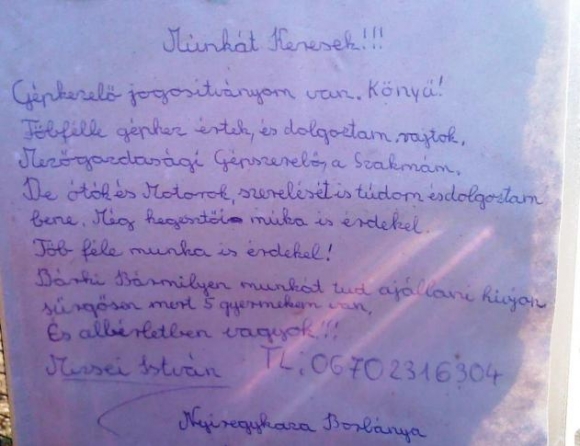 Munkát Keresek!!!
Gépkezelő jogosítványom van. Könyű!
Többfélle géphez értek, és dolgoztam rajtok.
Mezőgazdasági Gépszerelő, a Szakmám.
De ótók és Motorok, szerelését is túdom és dolgoztam
bene. Még hegesztői múka is érdekel.
Töb féle munka is érdekel!
Bárki Bármilyen munkát tud ajállani hívjon
sűrgősen mert 5 gyermekem van,
És albérletben vagyok!!
Mezsei István TL: 06702316304
Nyíregykaza Borbánya